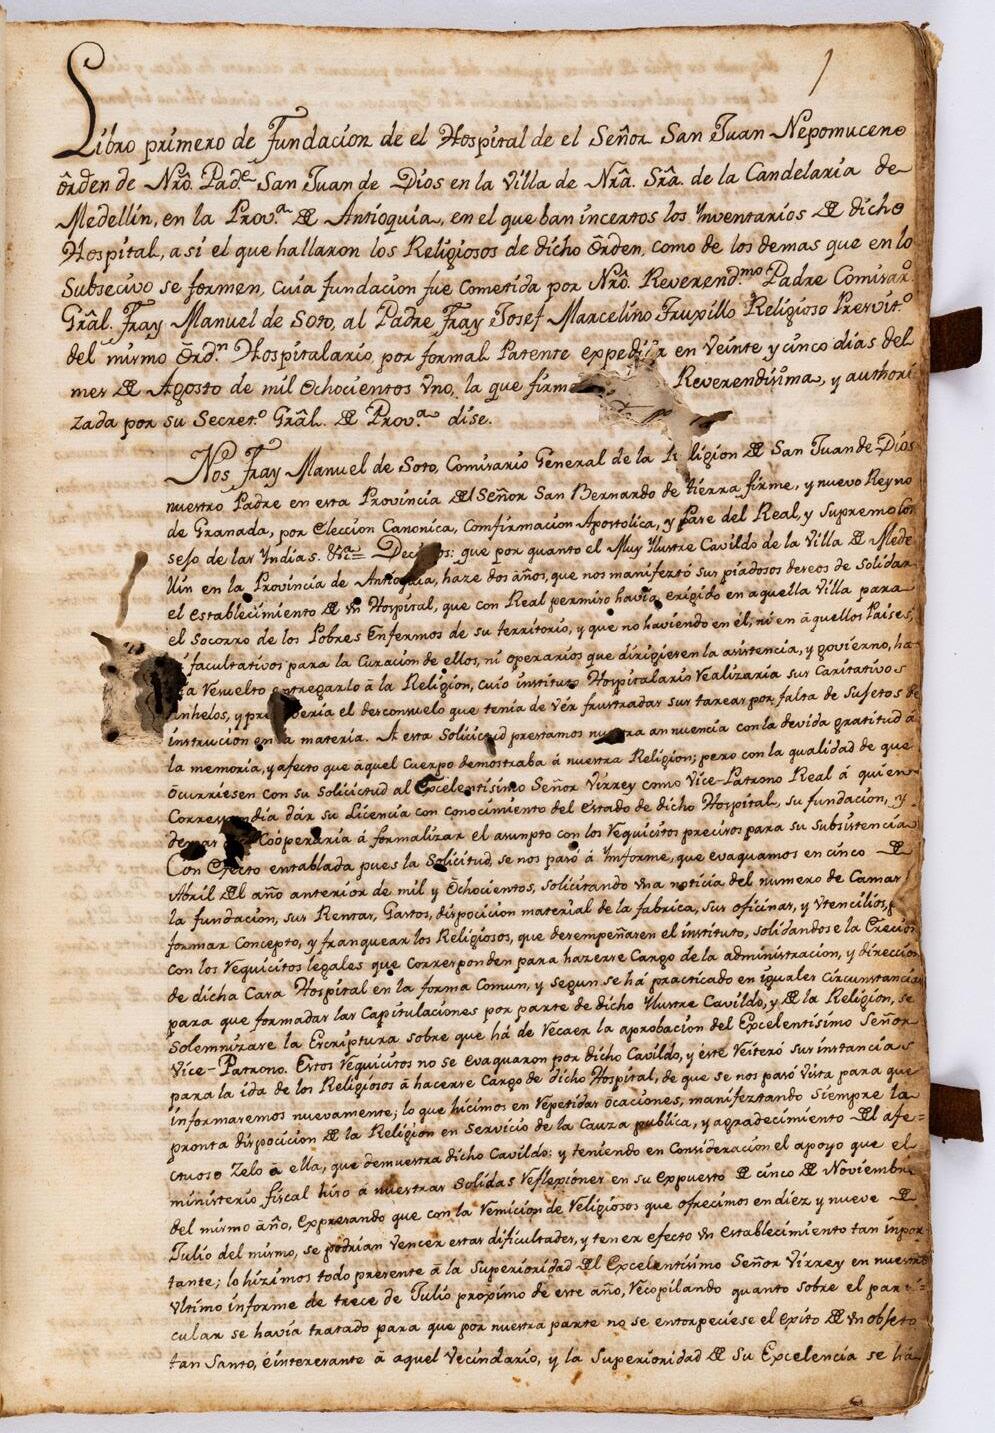 1
Libro primero de Fundacion de el Hospital de el Señor San Juan Nepomuceno
Õrden de Nrõ. Pad.e San Juan de Dios en la Villa de Nrã. Srã. de la Candelaria de
Medellin, en la Prov.a de Antioquia, en el que ban incertos los Ynventarios de dicho
Hospital, asi el que hallaron los Religiosos de dicho Õrden, como de los demas que en lo
Subsecivo se formen, cuia fundacion fue cometida por Nrõ. Reverend.mo Padre Comisar.o
Grãl. Fray Manuel de Soto, al Padre Fray Josef Marcelino Truxillo Religioso Presvit.o
del mismo Õrd.n Hospitalario, por formal Patente expedida en Veinte y cinco dias del
mes de Agosto de mil Ochocientos vno, la que firm Reverendisima, y authori
zada por su Secret.o Grãl. de Prov.a dise.
Nos Fray Manuel de Soto, Comisario General de la Religion de San Juan de Dios
nuestro Padre en esta Provincia del Señor San Bernardo de tierra firme, y nuevo Reyno
de Granada, por Eleccion Canonica, Comfirmacion Apostolica, y Pase del Real, y Supremo Con
sejo de las Yndias. &a= Decimos: que por quanto el Muy Ylustre Cavildo de la Villa de Mede
llin en la Provincia de Antioquia, haze dos años, que nos manifeztó sus piadosos deceos de solidar
el establecimiento de vn Hospital, que con Real permiso havia erigido en aquella Villa para
el socorro de los Pobres Enfermos de su territorio, y que no haviendo en él, ni en ãquellos Paises,
facultativos para la Curacion de ellos, ni operarios que dirigiesen la asistencia, y govierno, ha
Vesuelto entregarlo ã la Religion, cuio instituto Hospitalario Vealizaria sus Caritativos
anhelos, y el desconsuelo que tenia de vér frustradas sus tareas por falta de Sujetos de
instrucion en la materia. A esta Solicitud prestamos nuestra annuencia con la devida gratitud á
la memoria, y afecto que aquel Cuerpo demostraba á nuestra Religion; pero con la qualidad de que
õcurriesen con su solicitud al Excelentisimo Señor Virrey como Vice-Patrono Real á quien
Correspondia dár su Licencia con conocimiento del estado de dicho Hospital, su fundacion, y
demas Coöperaria á formalizar el asumpto con los Vequicitos precisos para su Subsistencia.
Con Efecto entablada pues la Solicitud, se nos pasó á Ynforme, que evaquamos en cinco de
Abril del año anterior de mil y Õchocientos, solicitando vna noticia del numero de Camas
la fundacion, sus Rentas, Gastos, disposicion material de la fabrica, sus oficinas, y vtencilios,
formar Concepto, y franquear los Religiosos, que desempeñasen el instituto, solidandose la Ereccion
con los Vequicitos legales que corresponden para hazerse Cargo de la administracion, y direccion
de dicha Casa Hospital en la forma Comun, y segun se há practicado en iguales circunstancias
para que formadas las Capitulaciones por parte de dicho Ylustre Cavildo, y de la Religion, se
Solemnizase la Escriptura sobre que há de Vecaer la aprobacion del Excelentisimo Señor
Vice-Patrono. Estos Vequicitos no se evaquaron por dicho Cavildo, y éste Veiteró sus instancias
para la ida de los Religiosos ã hacerse Cargo de dicho Hospital, de que se nos pasó Vista para que
informasemos nuevamente; lo que hicimos en Vepetidas õcaciones, manifeztando siempre la
pronta disposicion de la Religion en Servicio de la Cauza publica, y agradecimiento del afe=
ctuoso Zelo ã ella, que demuestra dicho Cavildo: y teniendo en Consideracion el apoyo que el
ministerio fiscal hiso á nuestras Solidas Veflexiones en su expuesto de cinco de Noviembre
del mismo año, expresando que con la Vemicion de Veligiosos que ofrecimos en diez y nueve de
Julio del mismo, se podrian Vencer estas dificultades, y tener efecto vn establecimiento tan inpor
tante; lo hizimos todo presente ã la Superioridad del Excelentisimo Señor Virrey en nuestro
Vltimo informe de trece de Julio proximo de este año, Vecopilando quanto sobre el parti=
cular se havia tratado para que por nuestra parte no se entorpeciese el exito de vn objeto
tan Santo, é interesante ã aquel Vecindario, y la Superioridad de Su Excelencia se há